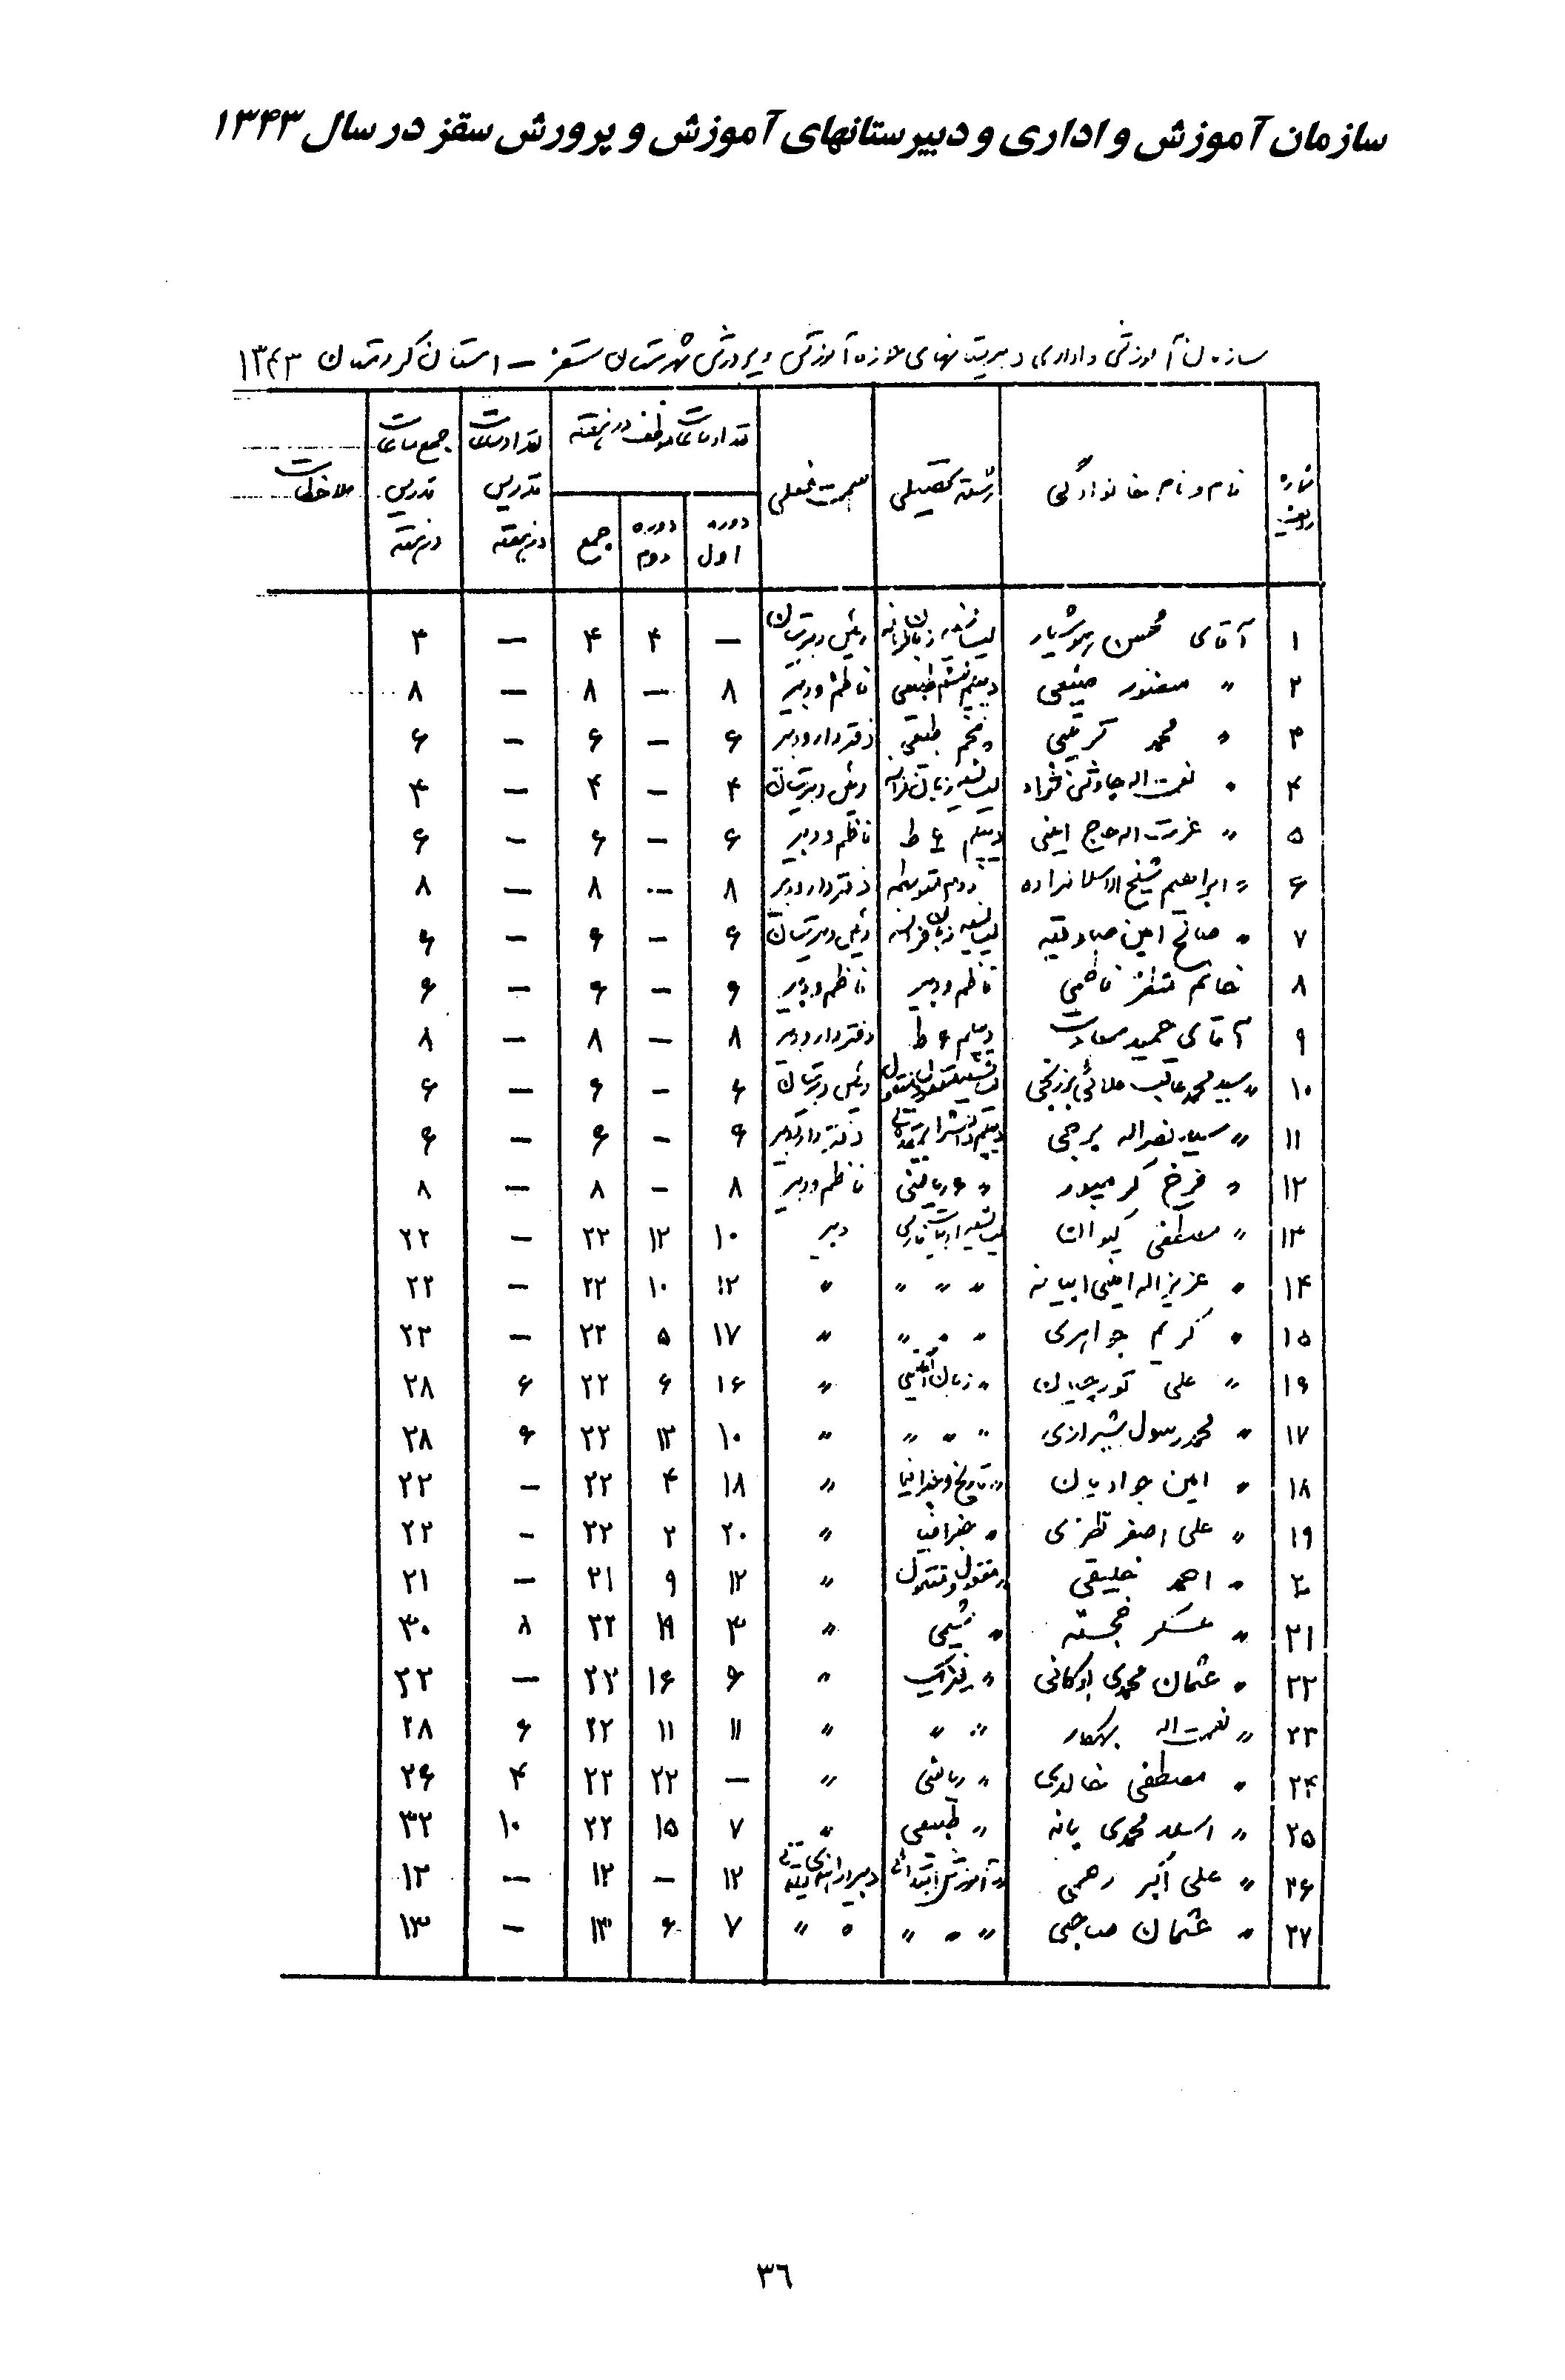 سازمان آموزش و اداری و دبیرستانهای آموزش و پرورش سقز در سال ۱۳۴۳
سازمان آموزشی و اداری دبیرستانهای حوزه آموزش و پرورش شهرستان سقز – استان کردستان ۱۳۴۳
شماره ردیف نام و نام خانوادگی رشته تحصیلی سمت فعلی تعداد ساعات موظف در هفته تعداد ساعات تدریس در هفته جمع ساعات تدریس در هفته ملاحظات
دوره اول دوره دوم جمع
۱ آقای محسن هوشیار لیسانسیه زبان فرانسه رئیس دبیرستان – ۴ ۴ – ۴
۲ " غفور ضیغمی دیپلم ششم طبیعی ناظم و دبیر ۸ – ۸ – ۸
۳ " محمد قریشی " پنجم طبیعی دفتردار و دبیر ۶ – ۶ – ۶
۴ " نعمت اله چاوشی نژاد لیسانسیه زبان فرانسه رئیس دبیرستان ۴ – ۴ – ۴
۵ " عزت اله حاج امینی دیپلم ۶ ط ناظم و دبیر ۶ – ۶ – ۶
۶ " ابراهیم شیخ الاسلامزاده دوم متوسطه دفتردار و دبیر ۸ – ۸ – ۸
۷ " صالح امین لیسانسیه زبان فرانسه رئیس دبیرستان ۶ – ۶ – ۶
۸ خانم فاطمی ناظم و دبیر ناظم و دبیر ۶ – ۶ – ۶
۹ آقای حمید سادات دیپلم ۶ ط دفتردار و دبیر ۸ – ۸ – ۸
۱۰ " سید محمد برزنجی لیسانسیه معقول و منقول رئیس دبیرستان ۶ – ۶ – ۶
۱۱ " سید نصراله برهی دیپلم دانشسرای دفتردار و دبیر ۶ – ۶ – ۶
۱۲ " فرخ کرمپور " ۶ ریاضی ناظم و دبیر ۸ – ۸ – ۸
۱۳ " مصطفی کیوان لیسانسیه ادبیات فارسی دبیر ۱۰ ۱۲ ۲۲ – ۲۲
۱۴ " عزیزاله امینی ابیانه " " " " ۱۲ ۱۰ ۲۲ – ۲۲
۱۵ " کریم جواهری " " " " ۱۷ ۵ ۲۲ – ۲۲
۱۶ " علی کورچیان " زبان انگلیسی " ۱۶ ۶ ۲۲ ۶ ۲۸
۱۷ " محمد رسول شیرازی " " " " ۱۰ ۱۲ ۲۲ ۶ ۲۸
۱۸ " امین جوادیان " تاریخ و جغرافیا " ۱۸ ۴ ۲۲ – ۲۲
۱۹ " علی اصغر نظری " جغرافیا " ۲۰ ۲ ۲۲ – ۲۲
۲۰ " احمد خلیقی " معقول و منقول " ۱۲ ۹ ۲۱ – ۲۱
۲۱ " عسکر خجسته " شیمی " ۳ ۱۹ ۲۲ ۸ ۳۰
۲۲ " عثمان محمدی بوکانی " فیزیک " ۶ ۱۶ ۲۲ – ۲۲
۲۳ " نعمت اله " " " ۱۱ ۱۱ ۲۲ ۶ ۲۸
۲۴ " مصطفی خالدی " ریاضی " – ۲۲ ۲۲ ۴ ۲۶
۲۵ " اسعد محمدی یانه " طبیعی " ۷ ۱۵ ۲۲ ۱۰ ۳۲
۲۶ " علی اکبر رحمی " آموزش ابتدائی دبیر ۱۲ – ۱۲ – ۱۲
۲۷ " عثمان صاحبی " " " " " ۷ ۶ ۱۳ – ۱۳
٣٦